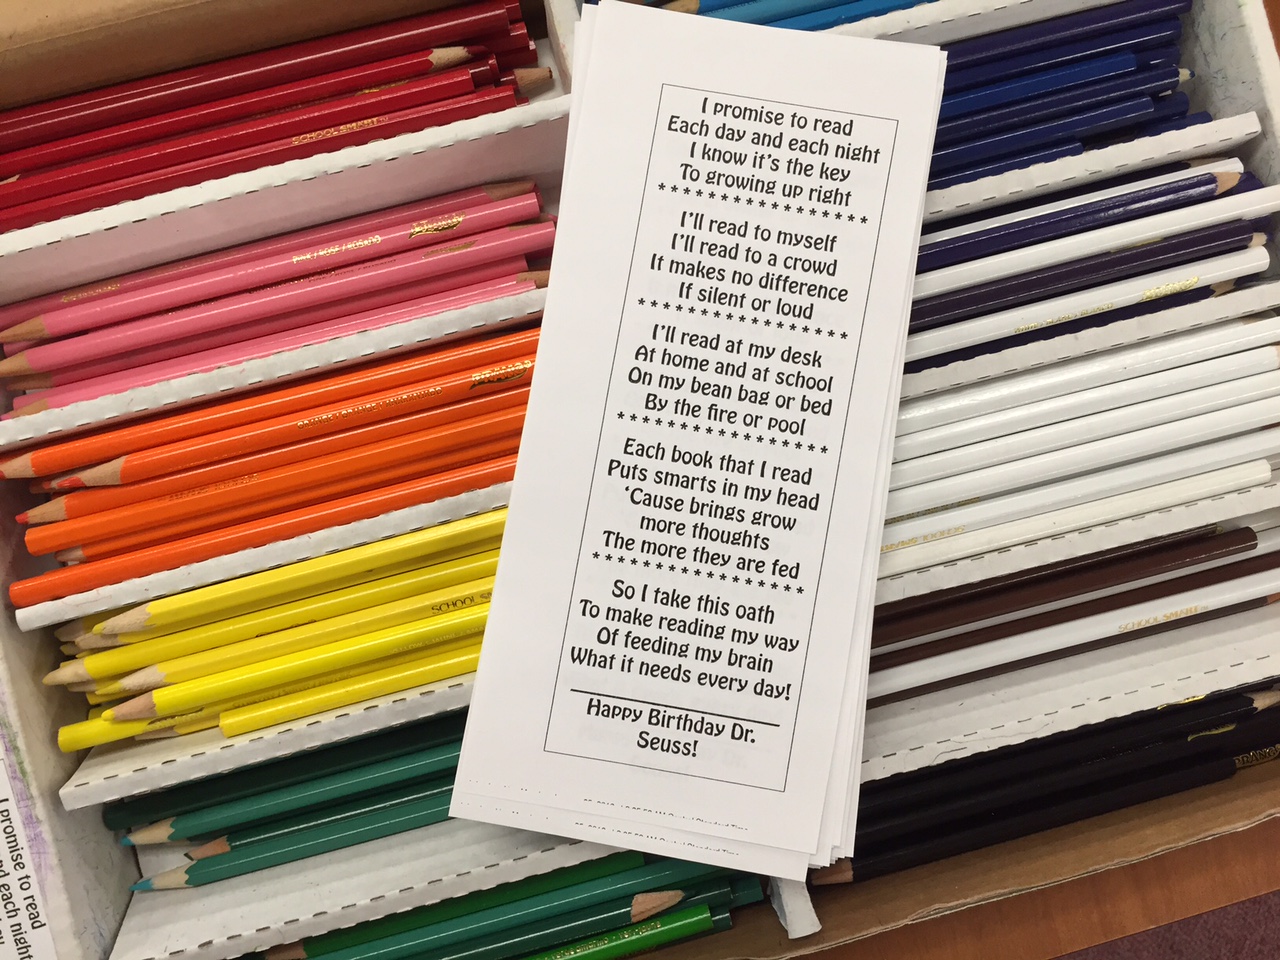 I promise to read
Each day and each night
I know it's the key
To growing up right
****************
I'll read to myself
I'll read to a crowd
It makes no difference
If silent or loud
****************
I'll read at my desk
At home and at school
On my bean bag or bed
By the fire or pool
****************
Each book that I read
Puts smarts in my head
'Cause brings grow
more thoughts
The more they are fed
****************
So I take this oath
To make reading my way
Of feeding my brain
What it needs every day!
Happy Birthday Dr.
Seuss!
SCHOOL SMART™
PINK / ROSE / ROSADO
SCHOOL
SCHOOL SMART™
I promise to read
and each night